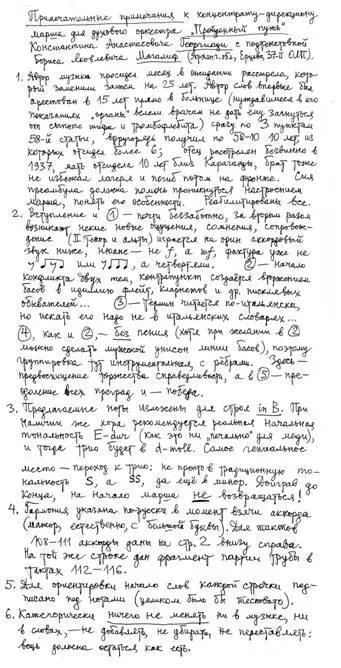 Примечательные примечания к концентрату-дирекциону
марша для духового оркестра „Пройденный путь"
Константина Анастасовича Георгиади с подтекстовкой
Бориса Яковлевича (Арханг. обл., Ерцево, 37-й ОЛП).
1. Автор музыки просидел месяц в ожидании расстрела, кото-
рый заменили затем на 25 лет. Автор слов впервые был
арестован в 15 лет прямо в больнице (нуждавшиеся в его
показаниях „органы" велели врачам не дать ему загнуться
от сыпного тифа и тромбофлебита) сразу по 3 пунктам
58-й статьи, получил по 58-10 10 лет, из
которых отсидел более 6; отец расстрелян безвинно в
1937, мать отсидела 10 лет близ Караганды, брат тоже
не избежал лагеря и погиб потом на фронте. Сия
преамбула должна помочь проникнуться настроением
марша, понять его особенности. Реабилитированы все.
2. Вступление и ① — почти беззаботно, за вторым разом
возникают некие новые ощущения, сомнения, сопровож-
дение (II тенор и альты) играется на один аккордовый
звук ниже, нюанс — не f, а mf, фактура уже не
или , а четвертями. ② — начало
конфликта двух тем, контрапункт создаётся вторжением
басов в идиллию флейт, кларнетов и др. писклявых
обывателей... ③ — термин читается по-итальянски,
но искать его надо не в итальянских словарях...
④, как и ②, — без пения (хотя при желании в ②
можно сделать мужской унисон линии басов), поэтому
группировка тут инструментальная, с рёбрами. Здесь —
предвосхищение торжества справедливости, а в ⑤ — пре-
одоление всех преград и — победа.
3. Предлагаемые ноты изложены для строя in B. При
наличии же хора рекомендуется реальная начальная
тональность E-dur (как это ни „печально" для меди),
и тогда трио будет в d-moll. Самое гениальное
место — переход к трио: не просто в традиционную то-
нальность S, а SS, да ещё в минор. Доиграв до
конца, на начало марша не возвращаться!
4. Гармония указана по-русски в момент взятия аккорда
(мажор, естественно, с большой буквы). Для тактов
108-111 аккорды даны на стр. 2 внизу справа.
На той же строке дан фрагмент партии трубы в
тактах 112-116.
5. Для ориентировки начало слов каждой строчки под-
писано под нотами (целиком было бы тесновато).
6. Категорически ничего не менять ни в музыке, ни
в словах, — не добавлять, не убирать, не переставлять:
вещь должна остаться как есть.